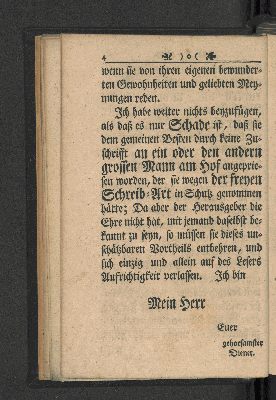 4 ) o (
wenn sie von ihren eigenen bewunder-
ten Gewohnheiten und geliebten Mey-
nungen reden.
Ich habe weiter nichts beyzufügen,
als daß es nur Schade ist, daß sie
dem gemeinen Besten durch keine Zu-
schrifft an ein oder den andern
grossen Mann am Hof angeprie-
sen worden, der sie wegen der freyen
Schreib-Art in Schutz genommen
hätte; Da aber der Herausgeber die
Ehre nicht hat, mit jemand daselbst be-
kannt zu seyn, so müssen sie dieses un-
schätzbaren Vortheils entbehren, und
sich einzig und allein auf des Lesers
Aufrichtigkeit verlassen. Ich bin
Mein Herr
Euer
gehorsamster
Diener.